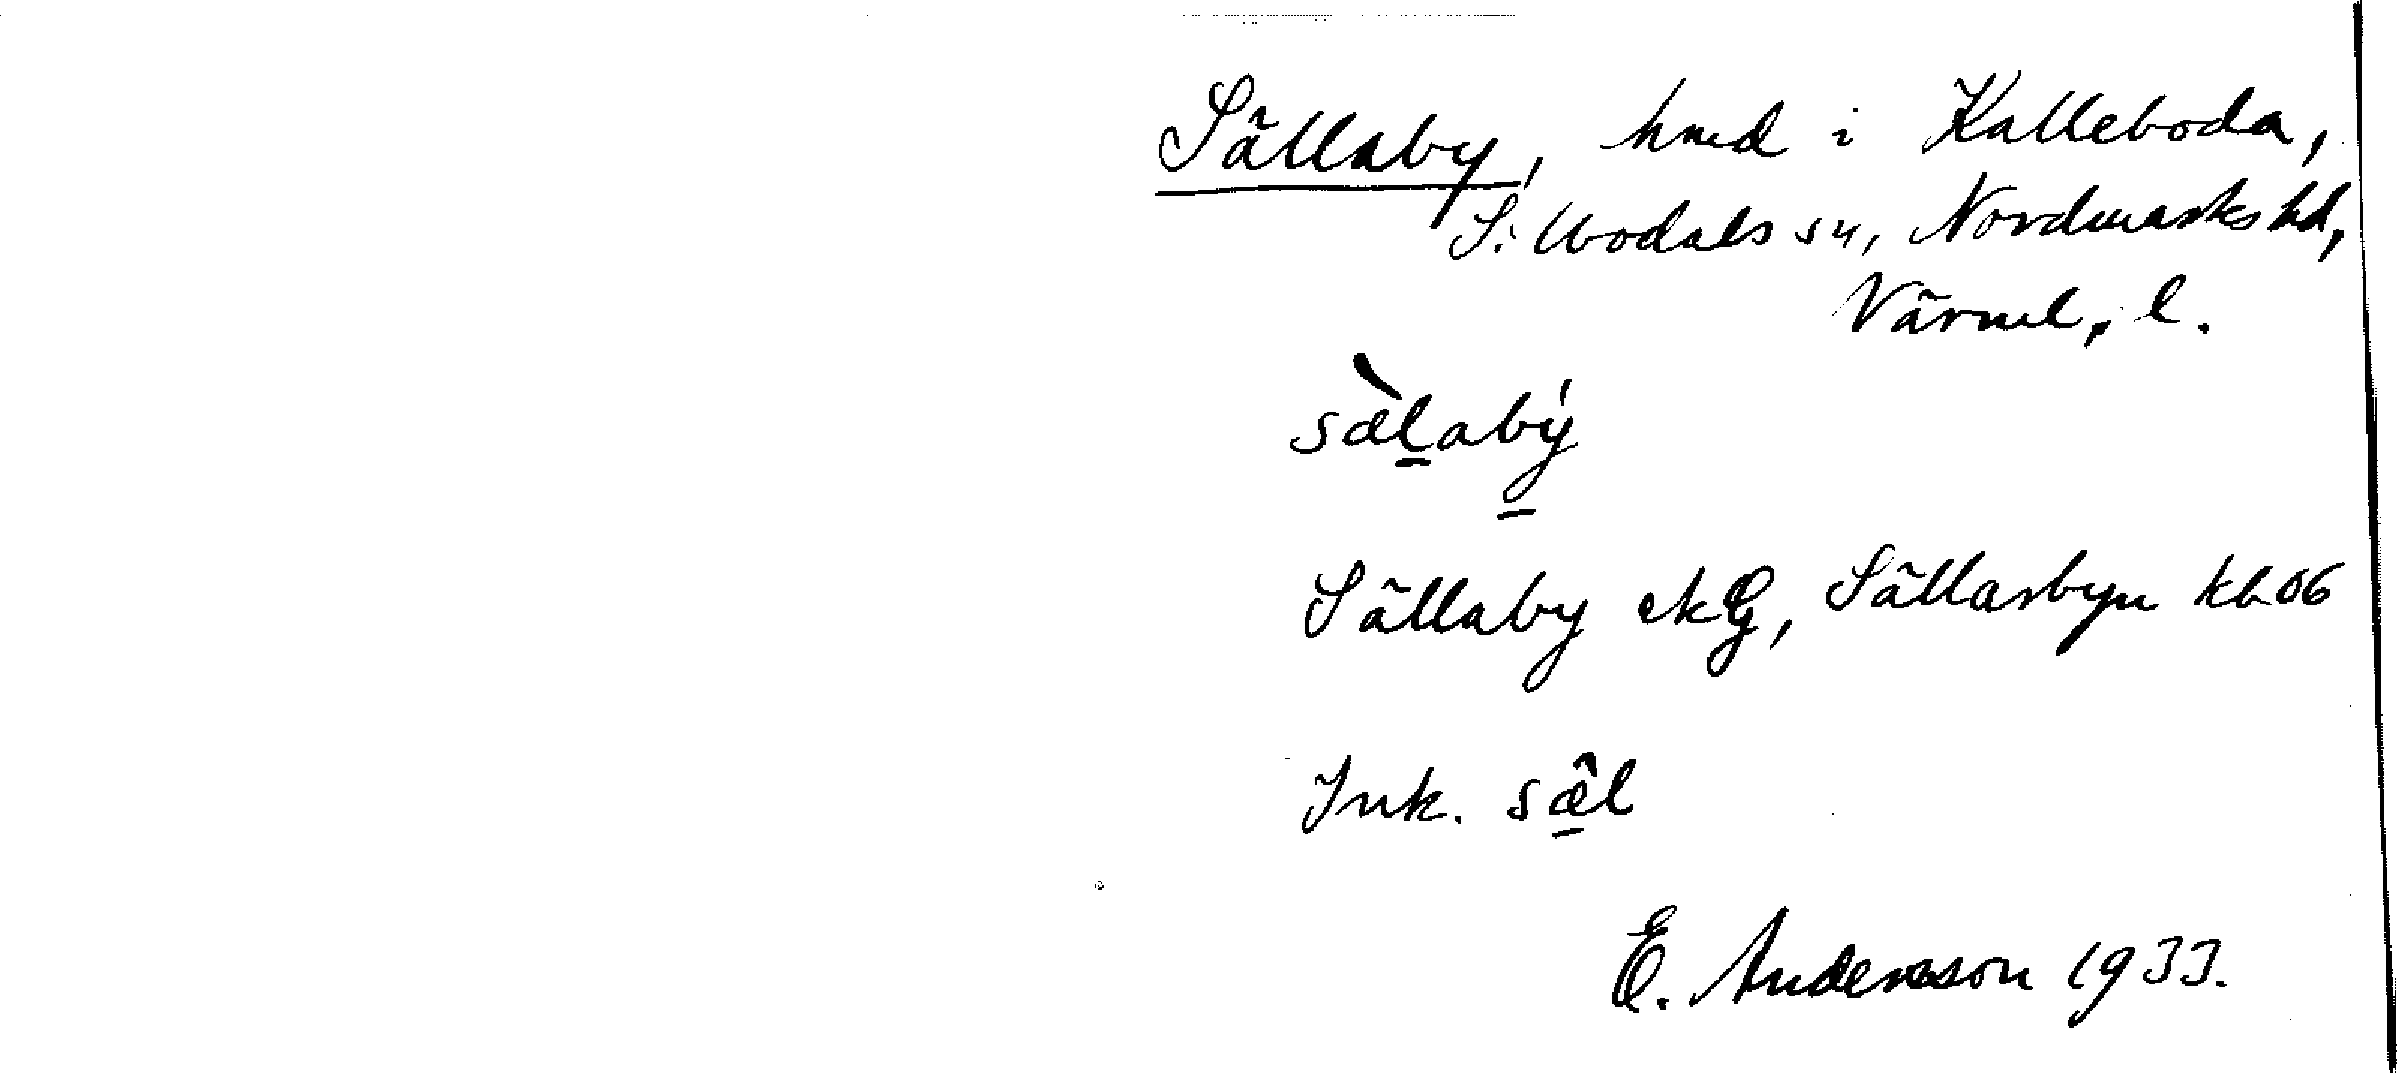 Sällaby, hmd i Kalleboda,
S. Ubodals sn, Nordmarks hd,
Värml. l.
sæ̀labý̗
Sällaby ekG, Sällarbyn kb06
Ink. sæ̂l
E. Andersson 1933.